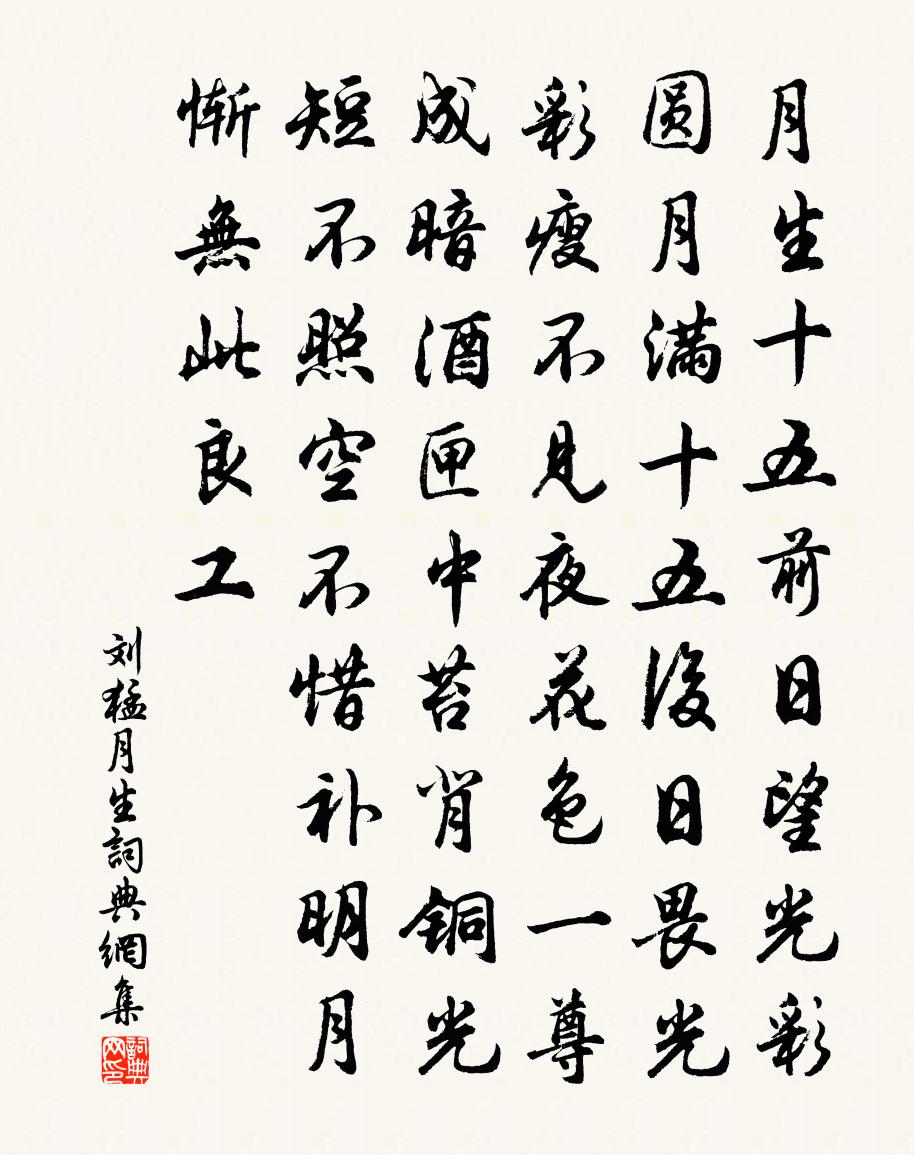 月生十五前日望光彩
圆月满十五後日畏光
彩瘦不见夜花色一尊
成暗酒匣中苔背铜光
短不照空不惜补明月
惭無此良工
刘猛月生詞典網集
詞典网印